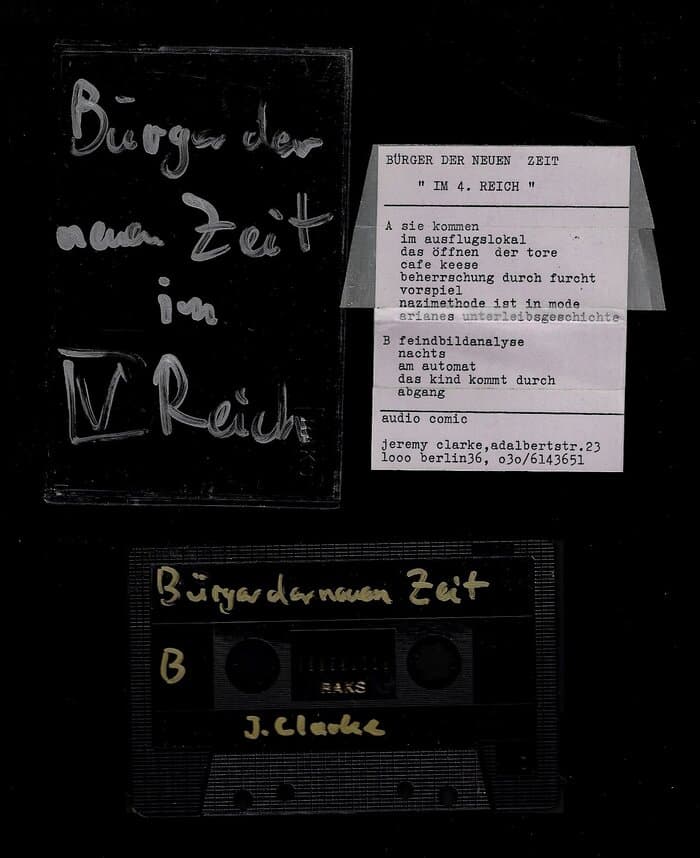 Bürger der
neuen Zeit
im
IV Reich
BÜRGER DER NEUEN ZEIT
" IM 4. REICH "
A sie kommen
im ausflugslokal
das öffnen der tore
cafe keese
beherrschung durch furcht
vorspiel
nazimethode ist in mode
arianes unterleibsgeschichte
B feindbildanalyse
nachts
am automat
das kind kommt durch
abgang
audio comic
jeremy clarke,adalbertstr.23
looo berlin36, o3o/6143651
Bürger der neuen Zeit
B
RAKS
J. Clarke